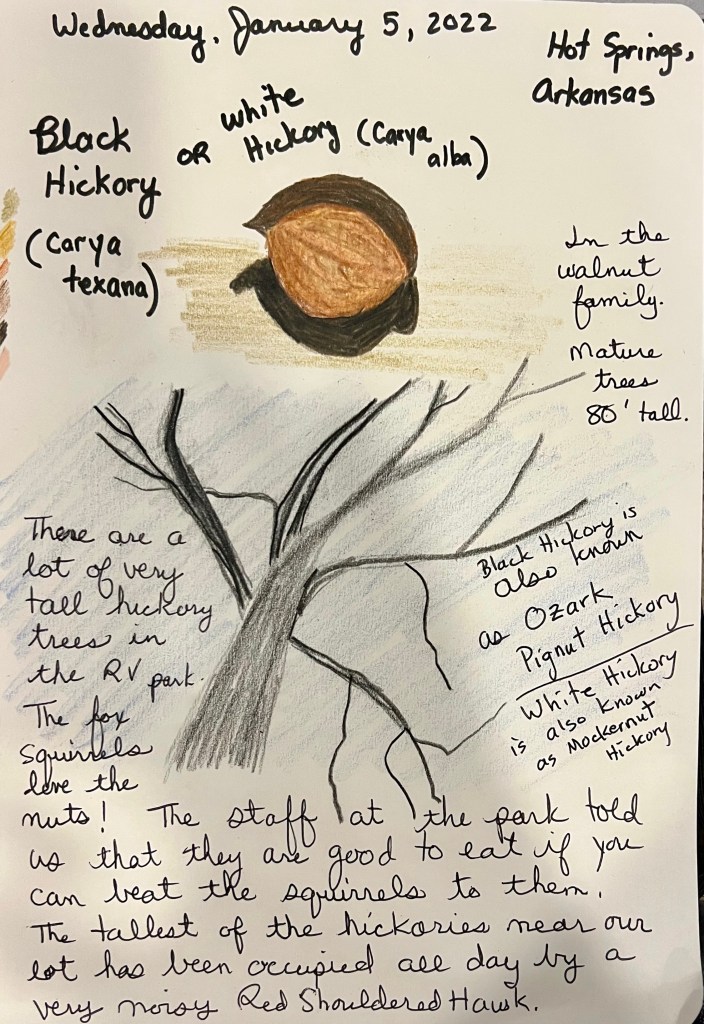 Wednesday, January 5, 2022
Hot Springs,
Arkansas
Black
Hickory
(Carya
texana)
OR White
Hickory (Carya
alba)
In the
walnut
family.
Mature
trees
80' tall.
There are a
lot of very
tall hickory
trees in
the RV park.
The fox
squirrels
love the
nuts! The staff at the park told
us that they are good to eat if you
can beat the squirrels to them.
The tallest of the hickories near our
lot has been occupied all day by a
very noisy Red Shouldered Hawk.
Black Hickory is
also known
as Ozark
Pignut Hickory
White Hickory
is also known
as Mockernut
Hickory